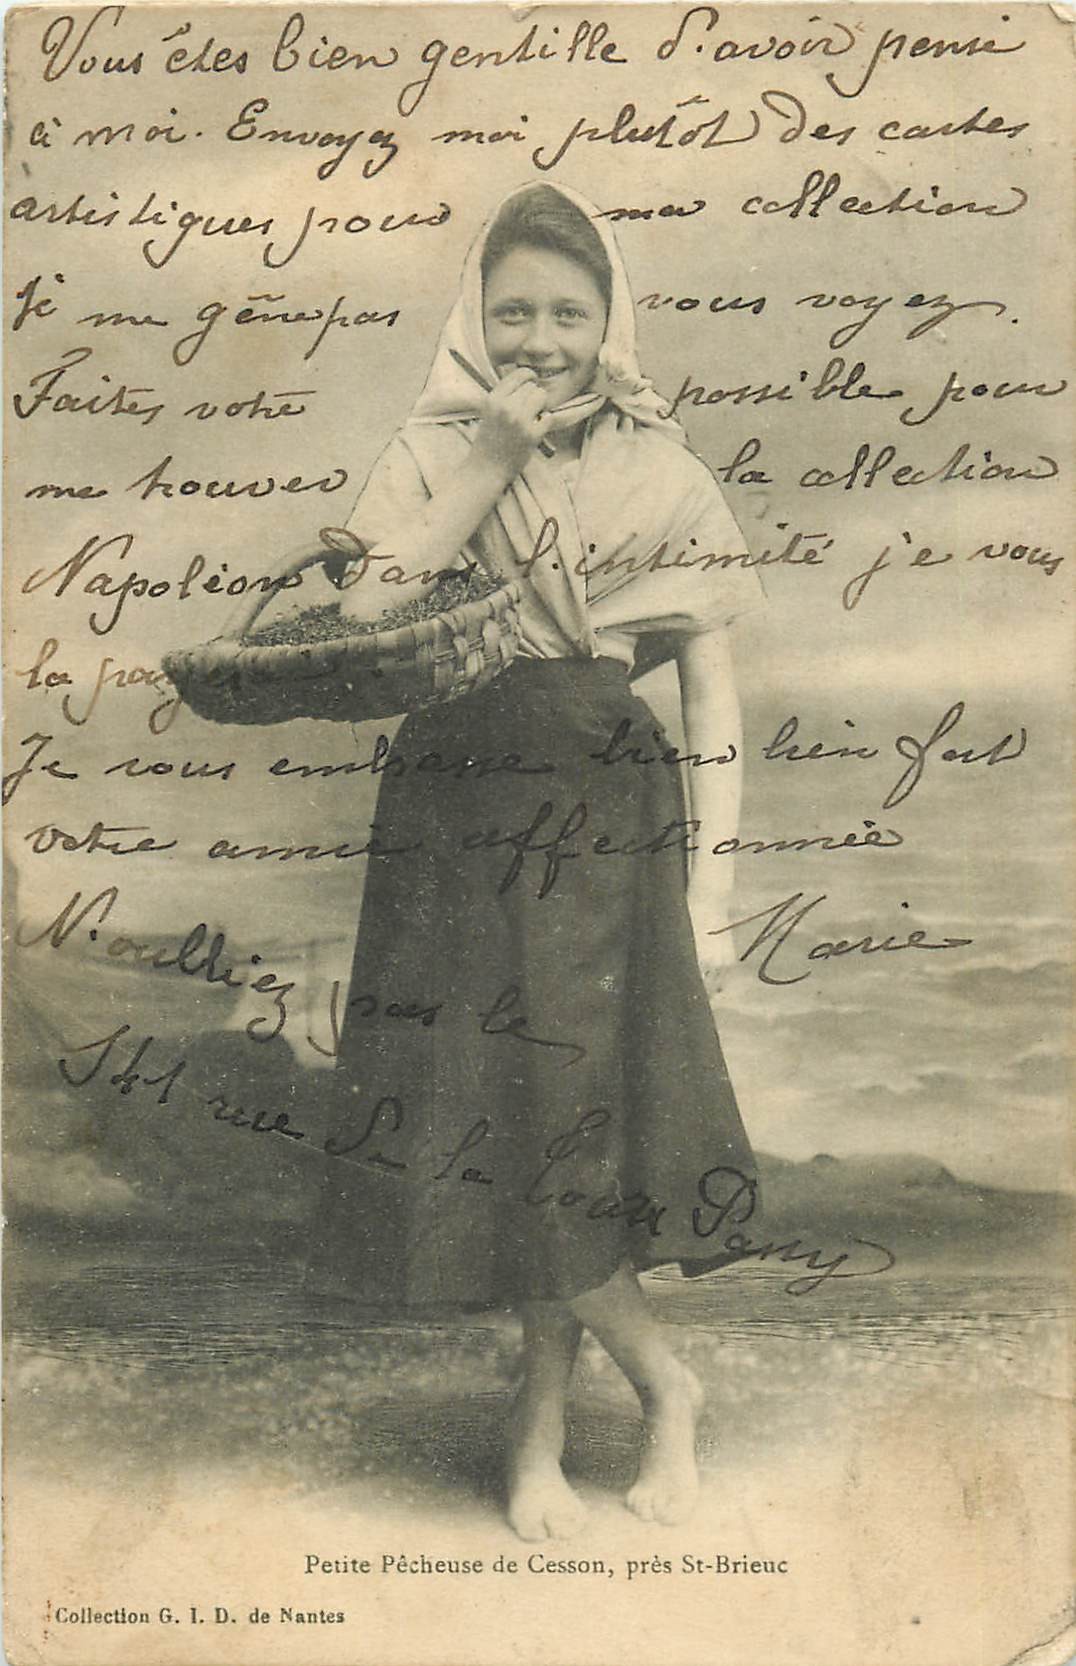 Vous êtes bien gentille d'avoir pensé
à moi. Envoyez moi plutôt des cartes
artistiques pour ma collection
Je me gêne pas vous voyez.
Faites votre possible pour
me trouver la collection
Napoléon dans l'intimité je vous
la payerai.
Je vous embrasse bien bien fort
votre amie affectionnée
Marie
N'oubliez pas le
141 rue de la Tour Passy
Petite Pêcheuse de Cesson, près St-Brieuc
Collection G. I. D. de Nantes